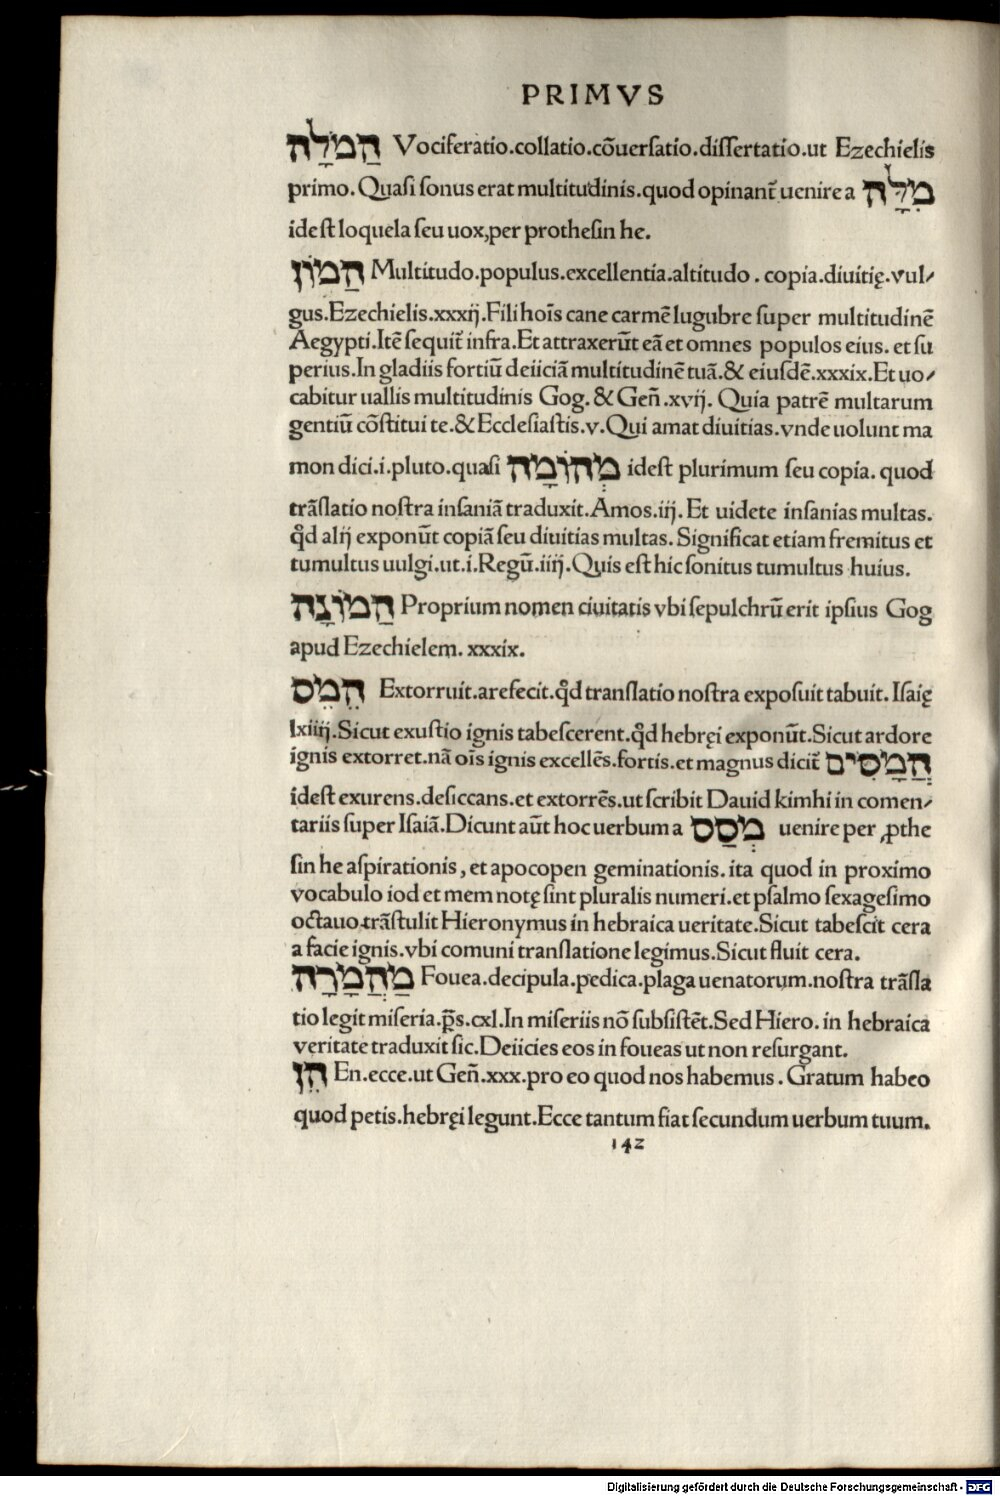 PRIMVS
הֲמֻלָּה Vociferatio.collatio.cõuersatio.dissertatio.ut Ezechielis
primo. Quasi sonus erat multitudinis.quod opinant᷑ uenire a מִלָּה
idest loquela seu uox,per prothesin he.
הָמוֹן Multitudo.populus.excellentia.altitudo . copia.diuitię.vul⸗
gus.Ezechielis.xxxij.Fili hoĩs cane carmẽ lugubre super multitudinẽ
Aegypti.Itẽ sequit᷑ infra.Et attraxerũt eã et omnes populos eius. et su
perius.In gladiis fortiũ deiiciã multitudinẽ tuã.& eiusdẽ.xxxix.Et uo⸗
cabitur uallis multitudinis Gog. & Geñ.xvij. Quia patrẽ multarum
gentiũ cõstitui te.& Ecclesiastis.v.Qui amat diuitias.vnde uolunt ma
mon dici.i.pluto.quasi מְהוֹמָה idest plurimum seu copia. quod
trãslatio nostra insaniã traduxit.Amos.iij. Et uidete insanias multas.
qđ alij exponũt copiã seu diuitias multas. Significat etiam fremitus et
tumultus uulgi.ut.i.Regũ.iiij.Quis est hic sonitus tumultus huius.
הַמוֹנָה Proprium nomen ciuitatis vbi sepulchrũ erit ipsius Gog
apud Ezechielem. xxxix.
הֵמֵס Extorruit.arefecit.qđ translatio nostra exposuit tabuit. Isaię
lxiiij.Sicut exustio ignis tabescerent.qđ hebręi exponũt.Sicut ardore
ignis extorret.nã oĩs ignis excellẽs.fortis.et magnus dicit᷑ הֲמָסִים
idest exurens.desiccans.et extorrẽs.ut scribit Dauid kimhi in comen⸗
tariis super Isaiã.Dicunt aũt hoc uerbum a מְסַס uenire per ꝓthe
sin he aspirationis, et apocopen geminationis. ita quod in proximo
vocabulo iod et mem notę sint pluralis numeri.et psalmo sexagesimo
octauo.trãstulit Hieronymus in hebraica ueritate.Sicut tabescit cera
a facie ignis.vbi comuni translatione legimus.Sicut fluit cera.
מַהֲמָרָה Fouea.decipula.pedica.plaga uenatorum.nostra trãsla
tio legit miseria.p̃s.cxl.In miseriis nõ subsistẽt.Sed Hiero. in hebraica
veritate traduxit sic.Deiicies eos in foueas ut non resurgant.
הֵן En.ecce.ut Geñ.xxx.pro eo quod nos habemus . Gratum habeo
quod petis.hebręi legunt.Ecce tantum fiat secundum uerbum tuum.
142
Digitalisierung gefördert durch die Deutsche Forschungsgemeinschaft - DFG